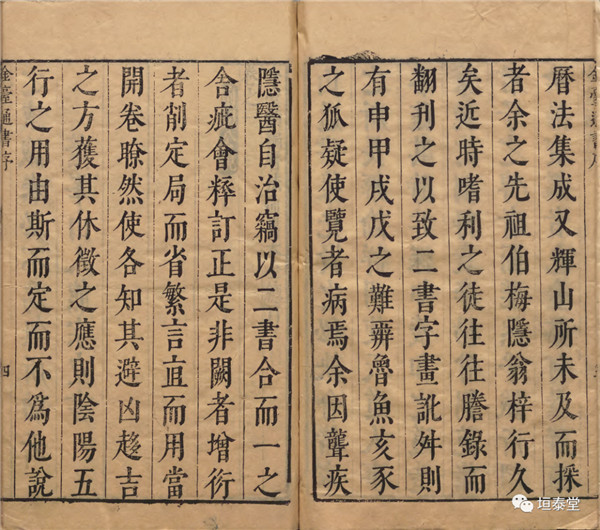 曆法集成又輝山所未及而採
者余之先祖伯梅隱翁梓行久
矣近時嗜利之徒往往謄錄而
翻刊之以致二書字畫訛舛則
有申甲戌戊之難辨魯魚亥豕
之狐疑使覽者病焉余因聾疾
隱醫自治竊以二書合而一之
舍疵會稡訂正是非闕者增衍
者削定局而省繁言直而用當
開卷瞭然使各知其避凶趨吉
之方獲其休徵之應則陰陽五
行之用由斯而定而不為他說
金臺通書序 四
垣泰堂